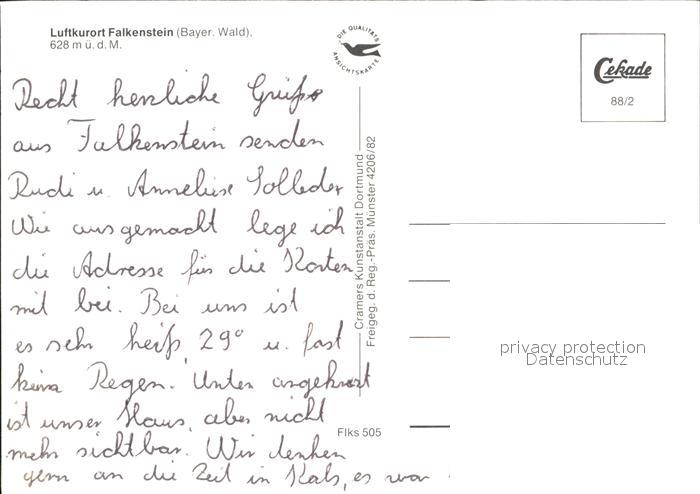 Luftkurort Falkenstein (Bayer. Wald),
628 m ü. d. M.
DIE QUALITÄTS
ANSICHTSKARTE
Cekade
88/2
Recht herzliche Grüße
aus Falkenstein senden
Rudi u. Anneliese Solleder
Wie ausgemacht lege ich
die Adresse für die Karten
mit bei. Bei uns ist
es sehr heiß 29° u. fast
keina Regen. Unten angekreuzt
ist unser Haus, aber nicht
mehr sichtbar. Wir denken
gern an die Zeit in Kals, es war
Cramers Kunstanstalt Dortmund
Freigeg. d. Reg.-Präs. Münster 4206/82
Flks 505
privacy protection
Datenschutz